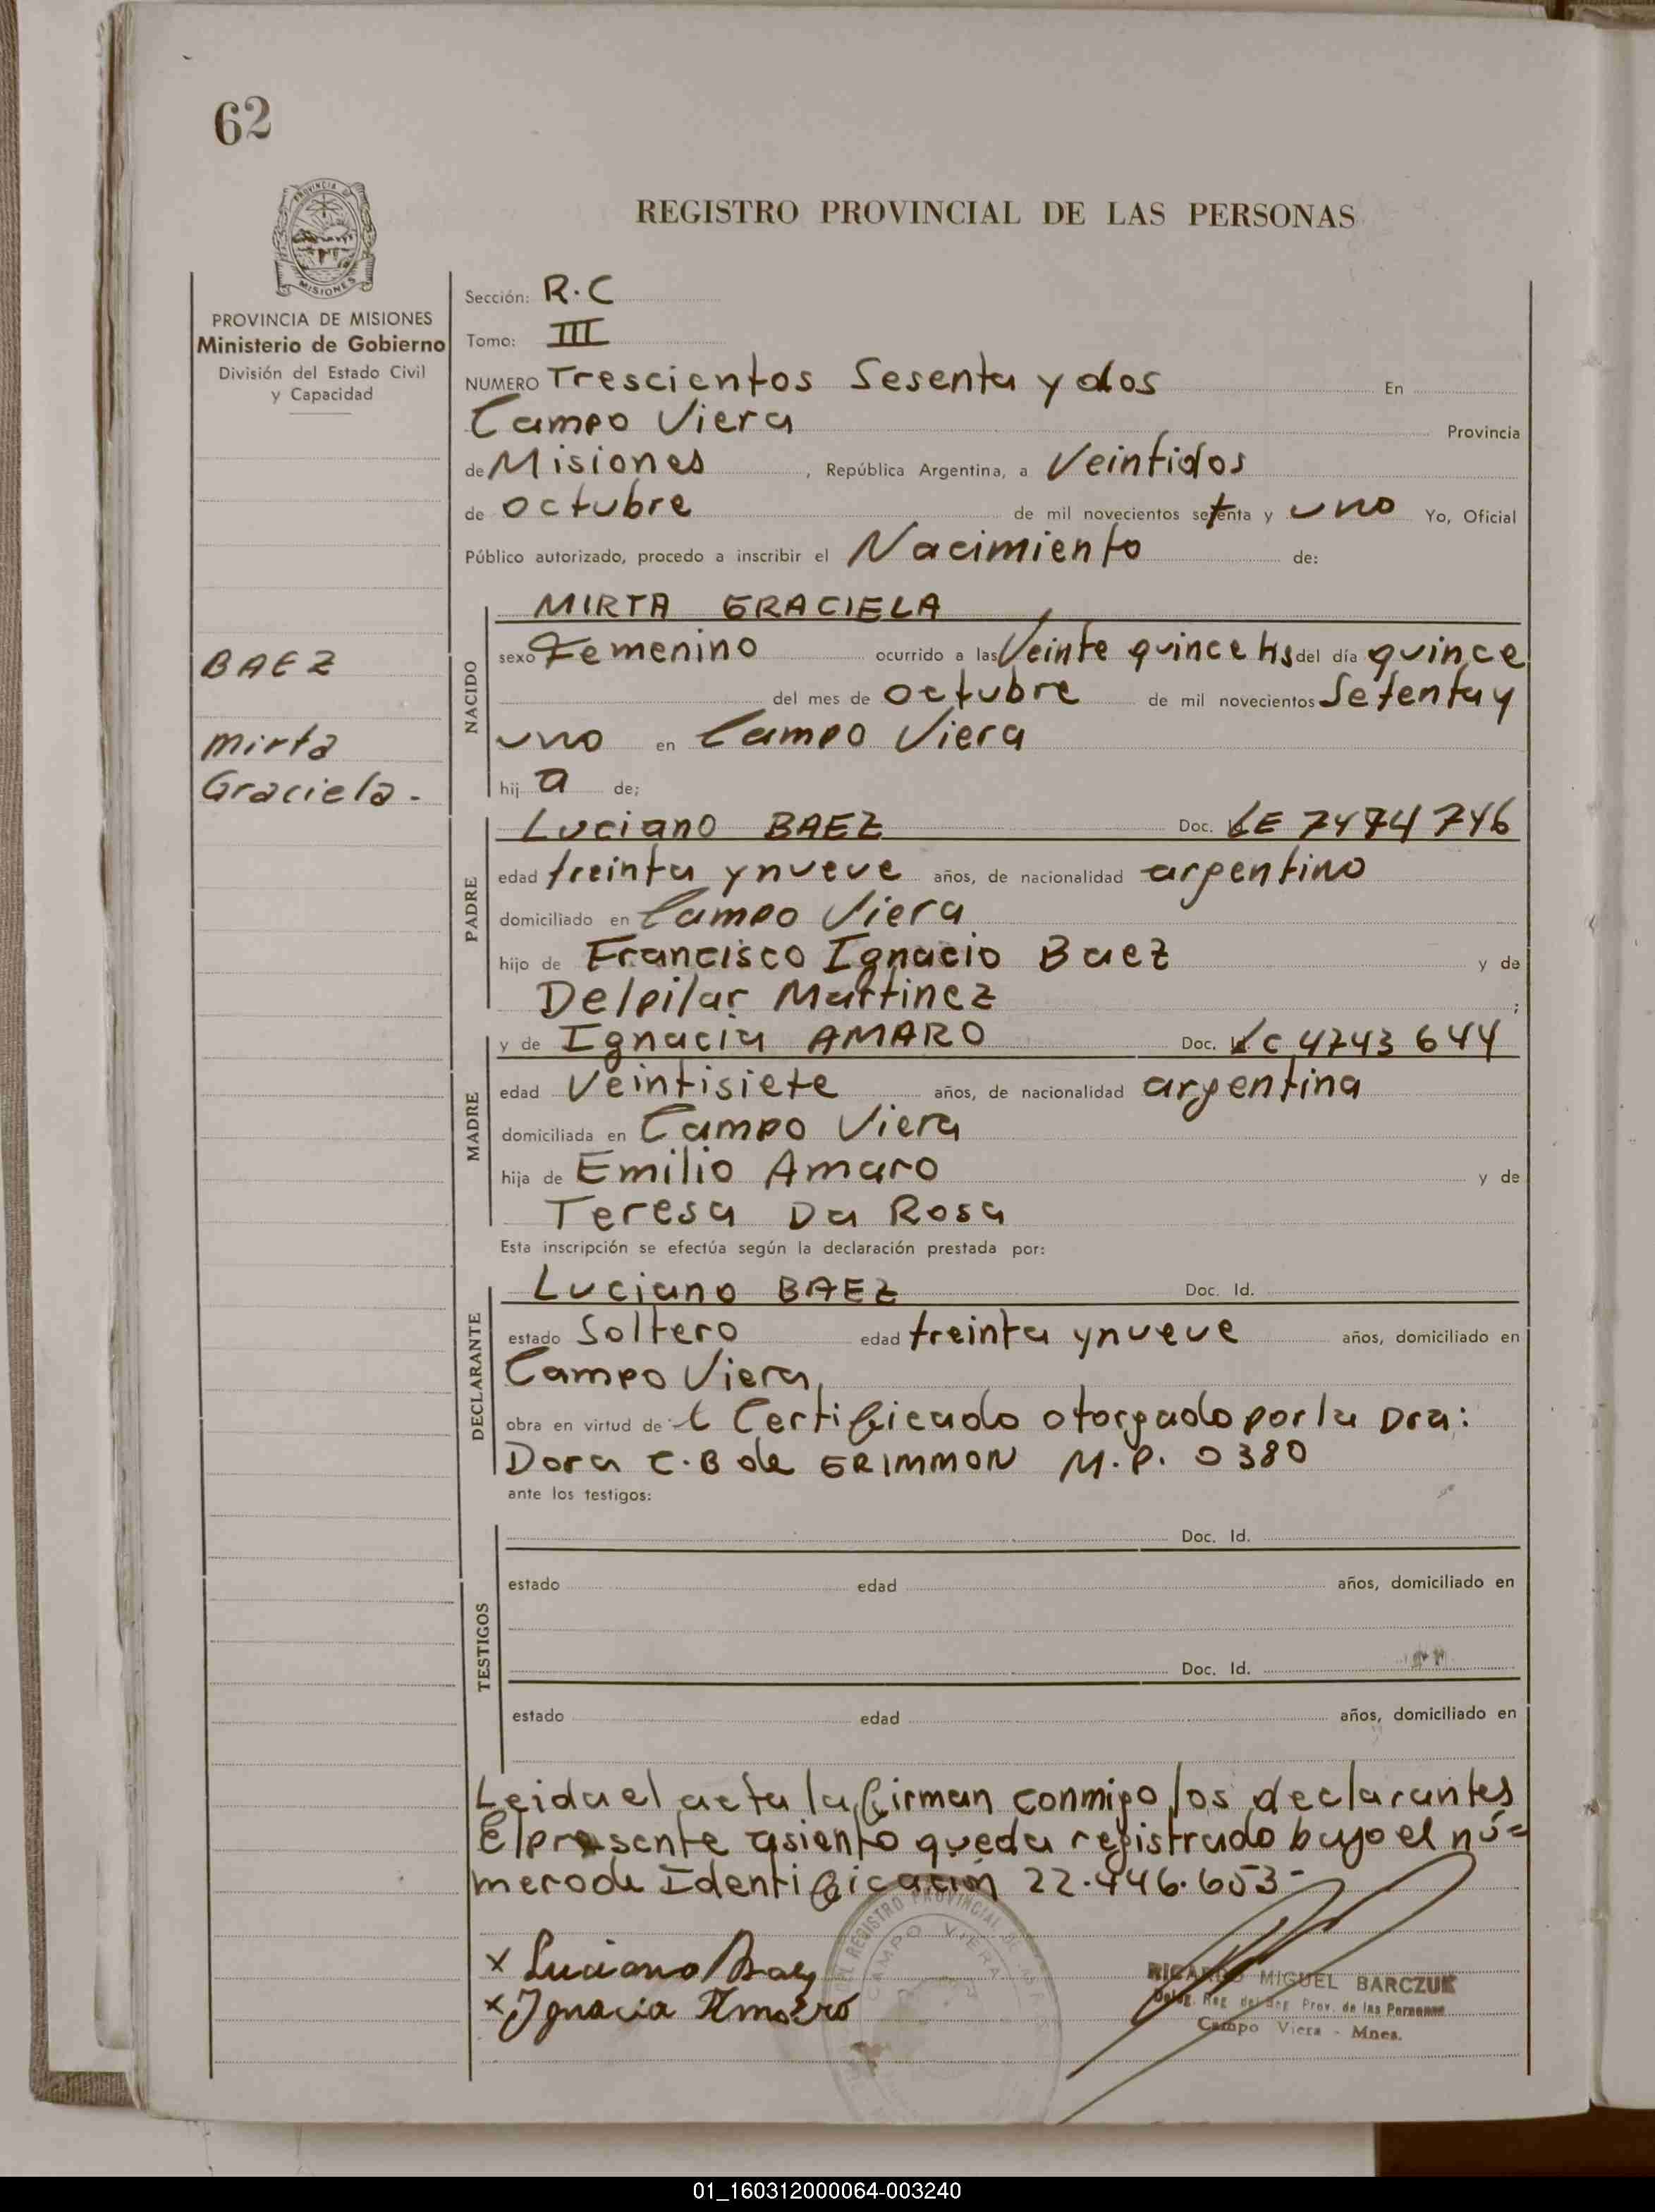 62
PROVINCIA DE
MISIONES
REGISTRO PROVINCIAL DE LAS PERSONAS
PROVINCIA DE MISIONES
Ministerio de Gobierno
División del Estado Civil
y Capacidad
BAEZ
Mirta
Graciela -
Sección: R.C
Tomo: III
NUMERO Trescientos Sesenta y dos En
Campo Viera Provincia
de Misiones , República Argentina, a Veintidos
de octubre de mil novecientos setenta y uno Yo, Oficial
Público autorizado, procedo a inscribir el Nacimiento de:
NACIDO
MIRTA GRACIELA
sexo Femenino ocurrido a las Veinte quince hs del día quince
del mes de octubre de mil novecientos Setenta y
uno en Campo Viera
hij a de;
PADRE
Luciano BAEZ Doc. LE 7474746
edad treinta y nueve años, de nacionalidad argentino
domiciliado en Campo Viera
hijo de Francisco Ignacio Baez y de
Delpilar Martinez ;
MADRE
y de Ignacia AMARO Doc. LC 4743644
edad Veintisiete años, de nacionalidad argentina
domiciliada en Campo Viera
hija de Emilio Amaro y de
Teresa Da Rosa
Esta inscripción se efectúa según la declaración prestada por:
DECLARANTE
Luciano BAEZ Doc. Id.
estado Soltero edad treinta y nueve años, domiciliado en
Campo Viera,
obra en virtud de l Certificado otorgado por la Dra:
Dora C. B de GRIMMON M.P. 0380
ante los testigos:
TESTIGOS
Doc. Id.
estado edad años, domiciliado en
Doc. Id.
estado edad años, domiciliado en
Leida el acta la firman conmigo los declarantes
El presente asiento queda registrado bajo el nú=
mero de Identificación 22.446.653-
x Luciano Baez
x Ignacia Amaro
DEL REGISTRO PROVINCIAL DE LAS
CAMPO VIERA
RICARDO MIGUEL BARCZUK
Deleg. Reg. del Reg. Prov. de las Personas
Campo Viera - Mnes.
01_160312000064-003240